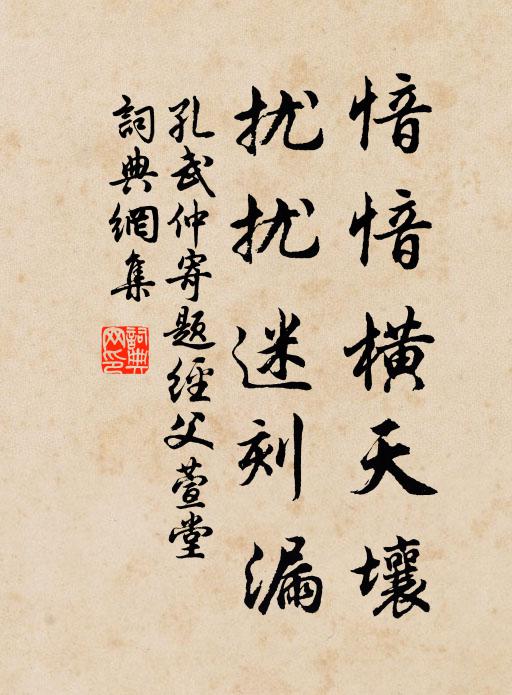 愔愔橫天壤
扰扰迷刻漏
孔武仲寄题經父萱堂
詞典網集
詞典网印